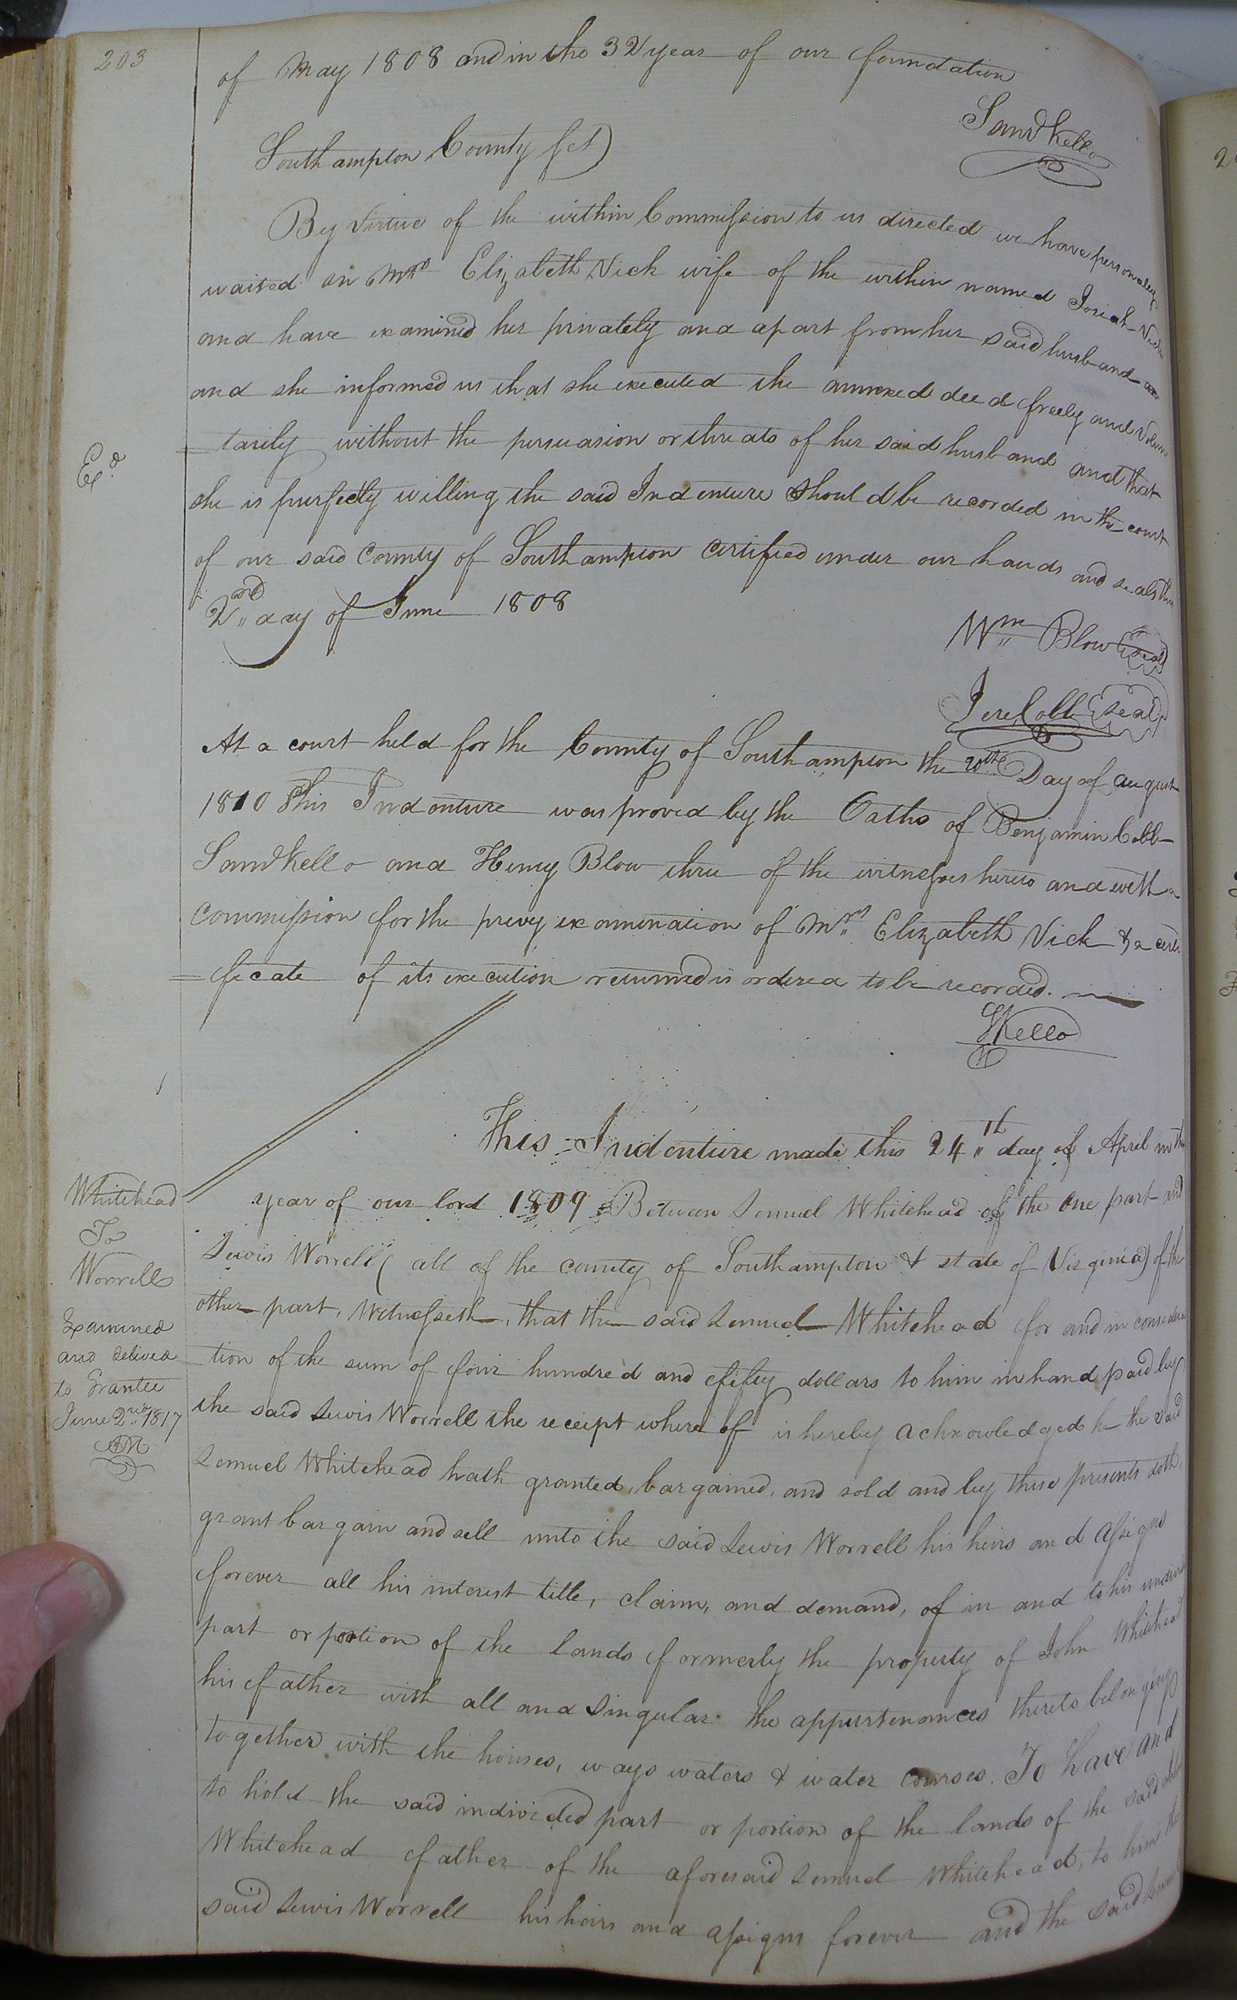 203
of May 1808 and in the 32 year of our foundation
Saml Kello
Southampton County Sct)
By Virtue of the within Commission to us directed we have personally
waited on Mrs Elizabeth Vick wife of the within named Josiah Vick
and have examined her privately and apart from her said husband
and she informed us that she executed the annexed deed freely and Volun
= tarily without the persuasion or threats of her said husband and that
Exd
she is purfectly willing the said Indenture Should be recorded in the court
of our said County of Southampton Certified under our hands and seals this
2nd day of June 1808
Wm Blow (Seal)
Jere Cobb (Seal)
At a court held for the County of Southampton the 20th Day of august
1810 This Indenture was proved by the Oaths of Benjamin Cobb
Saml Kello and Henry Blow three of the witnesses hereto and with a
Commission for the privy examination of Mrs Elizabeth Vick & a certi
= ficate of its execution returned is ordered to be recorded.
SKello
This Indenture made this 24th day of April in the
Whitehead
To
Worrell
Examined
and delived
to Grantee
June 2nd 1817
year of our lord 1809 Between Lemuel Whitehead of the One part and
Lewis Worrell (all of the county of Southampton & state of Virginia) of the
other part, Witnesseth, that the said Lemuel Whitehead for and in considera
tion of the sum of four hundred and fifty dollars to him in hand paid by
the said Lewis Worrell the receipt where of is hereby acknowledged he the said
Lemuel Whitehead hath granted, bargained, and sold and by these presents doth,
grant bargain and sell unto the said Lewis Worrell his heirs and Assigns
forever all his interest title, claim, and demand, of in and to his undivided
part or portion of the lands formerly the property of John Whitehead
his father with all and Singular the appurtenances thereto belonging
together with the houses, ways waters & water courses. To have and
to hold the said individed part or portion of the lands of the said
Whitehead father of the aforesaid Lemuel Whitehead, to him the
said Lewis Worrell his heirs and assigns forever and the said